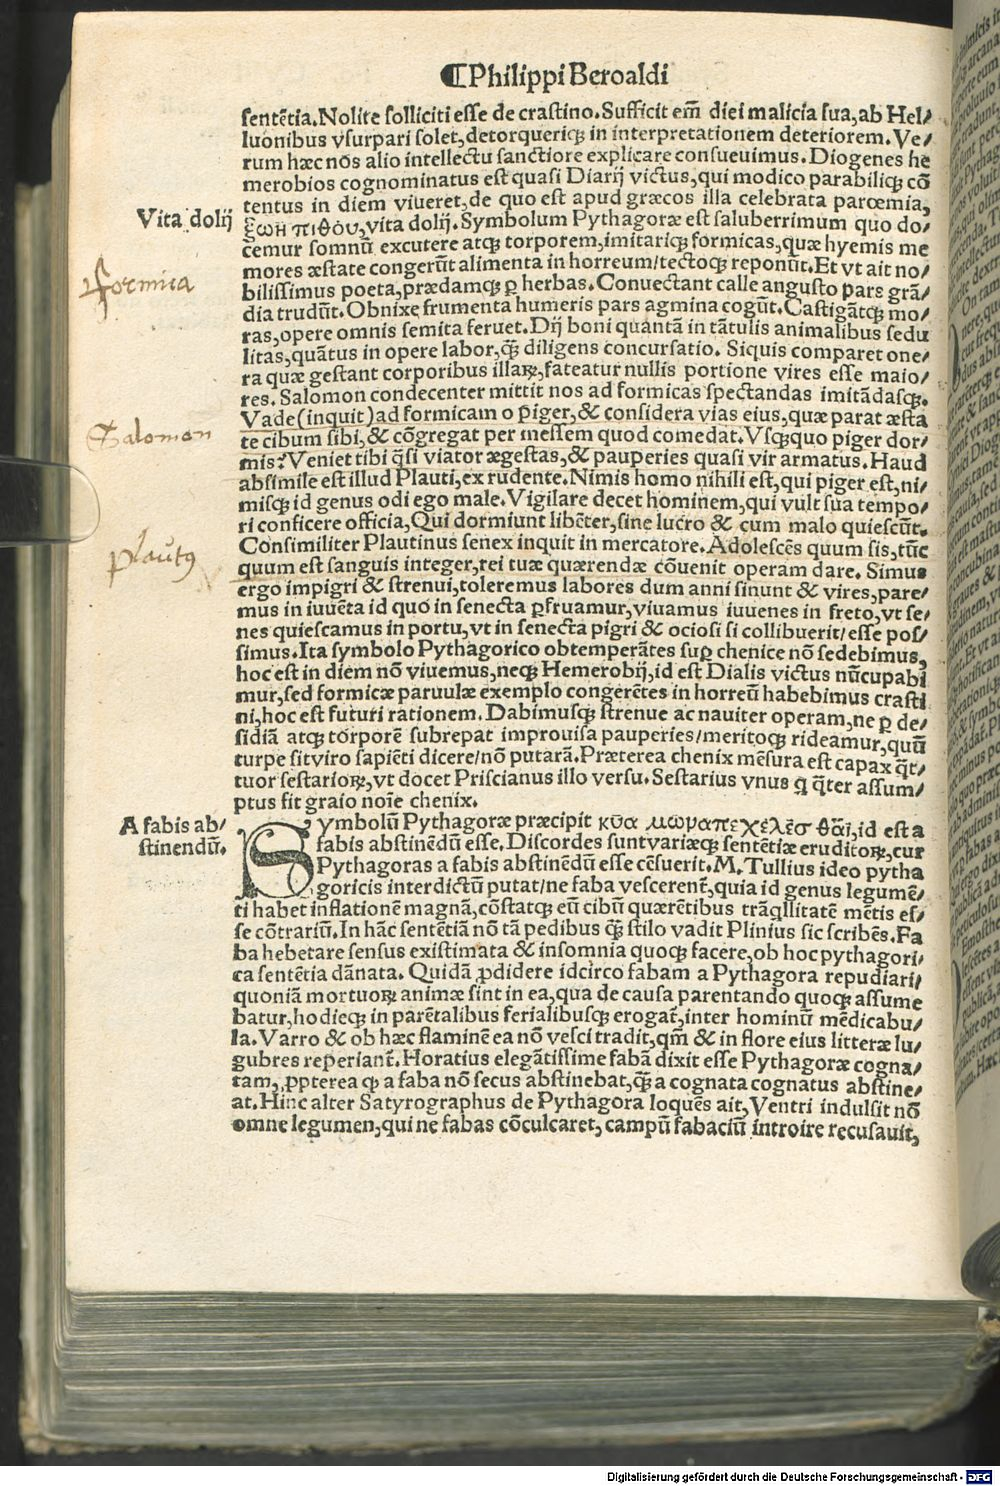 ¶Philippi Beroaldi
sentētia. Nolite solliciti esse de crastino. Sufficit em̄ diei malicia sua, ab Hel/
luonibus vsurpari solet, detorqueriqȝ in interpretationem deteriorem. Ve/
rum hæc nos alio intellectu sanctiore explicare consueuimus. Diogenes he
merobios cognominatus est quasi Diarij victus, qui modico parabiliqȝ cō
tentus in diem viueret, de quo est apud græcos illa celebrata parœmia,
Vita dolij
ξωη πιθου, vita dolij. Symbolum Pythagoræ est saluberrimum quo do/
cemur somnū excutere atqȝ torporem, imitariqȝ formicas, quæ hyemis me
mores æstate congerūt alimenta in horreum/tectoqȝ reponūt. Et vt ait no/
formica
bilissimus poeta, prædamqȝ ꝑ herbas. Conuectant calle angusto pars grā/
dia trudūt. Obnixę frumenta humeris pars agmina cogūt. Castigātqȝ mo/
ras, opere omnis semita feruet. Dij boni quantā in tātulis animalibus sedu
litas, quātus in opere labor, q̄ȝ diligens concursatio. Siquis comparet one/
ra quæ gestant corporibus illaꝝ, fateatur nullis portione vires esse maio/
res. Salomon condecenter mittit nos ad formicas spectandas imitādasqȝ.
Salomon
Vade (inquit) ad formicam o piger, & considera vias eius, quæ parat æsta
te cibum sibi, & cōgregat per messem quod comedat. Vsqȝquo piger dor/
mis? Veniet tibi q̄si viator ægestas, & pauperies quasi vir armatus. Haud
absimile est illud Plauti, ex rudente. Nimis homo nihili est, qui piger est, ni/
misqȝ id genus odi ego male. Vigilare decet hominem, qui vult sua tempo/
ri conficere officia, Qui dormiunt libēter, sine lucro & cum malo quiescūt.
plautus
Consimiliter Plautinus senex inquit in mercatore. Adolescēs quum sis, tūc
quum est sanguis integer, rei tuæ quærendæ cōuenit operam dare. Simus
ergo impigri & strenui, toleremus labores dum anni sinunt & vires, pare/
mus in iuuēta id quo in senecta ꝑfruamur, viuamus iuuenes in freto, vt se/
nes quiescamus in portu, vt in senecta pigri & ociosi si collibuerit/esse pos/
simus. Ita symbolo Pythagorico obtemperātes suꝑ chenice nō sedebimus,
hoc est in diem nō viuemus, neqȝ Hemerobij, id est Dialis victus nūcupabi
mur, sed formicæ paruulæ exemplo congerētes in horreū habebimus crasti
ni, hoc est futuri rationem. Dabimusqȝ strenue ac nauiter operam, ne ꝑ de/
sidiā atqȝ torporē subrepat improuisa pauperies/meritoqȝ rideamur, quū
turpe sit viro sapiēti dicere/nō putarā. Præterea chenix mēsura est capax q̄t/
tuor sestarioꝝ, vt docet Priscianus illo versu. Sestarius vnus q q̄ter assum/
ptus fit graio noīe chenix.
A fabis ab/
stinendū.
Symbolū Pythagoræ præcipit κυα μωναπεχελεσ θαι, id est a
fabis abstinēdū esse. Discordes sunt variæqȝ sentētiæ eruditoꝝ, cur
Pythagoras a fabis abstinēdū esse cēsuerit. M. Tullius ideo pytha
goricis interdictū putat/ne faba vescerent̄, quia id genus legumē/
ti habet inflationē magnā, cōstatqȝ eū cibū quærētibus trāqllitatē mētis es/
se cōtrariū. In hāc sentētiā nō tā pedibus q̄ȝ stilo vadit Plinius sic scribēs. Fa
ba hebetare sensus existimata & insomnia quoqȝ facere, ob hoc pythagori/
ca sentētia dānata. Quidā ꝓdidere idcirco fabam a Pythagora repudiari/
quoniā mortuoꝝ animæ sint in ea, qua de causa parentando quoqȝ assume
batur, hodieqȝ in parētalibus ferialibusqȝ erogat̄, inter hominū mēdicabu/
la. Varro & ob hæc flaminē ea nō vesci tradit, qm̄ & in flore eius litteræ lu/
gubres reperiant̄. Horatius elegātissime fabā dixit esse Pythagoræ cogna/
tam, ꝓpterea ꝙ a faba nō secus abstinebat, q̄ȝ a cognata cognatus abstine/
at. Hinc alter Satyrographus de Pythagora loquēs ait, Ventri indulsit nō
omne legumen, qui ne fabas cōculcaret, campū fabaciū introire recusauit,
Digitalisierung gefördert durch die Deutsche Forschungsgemeinschaft - DFG